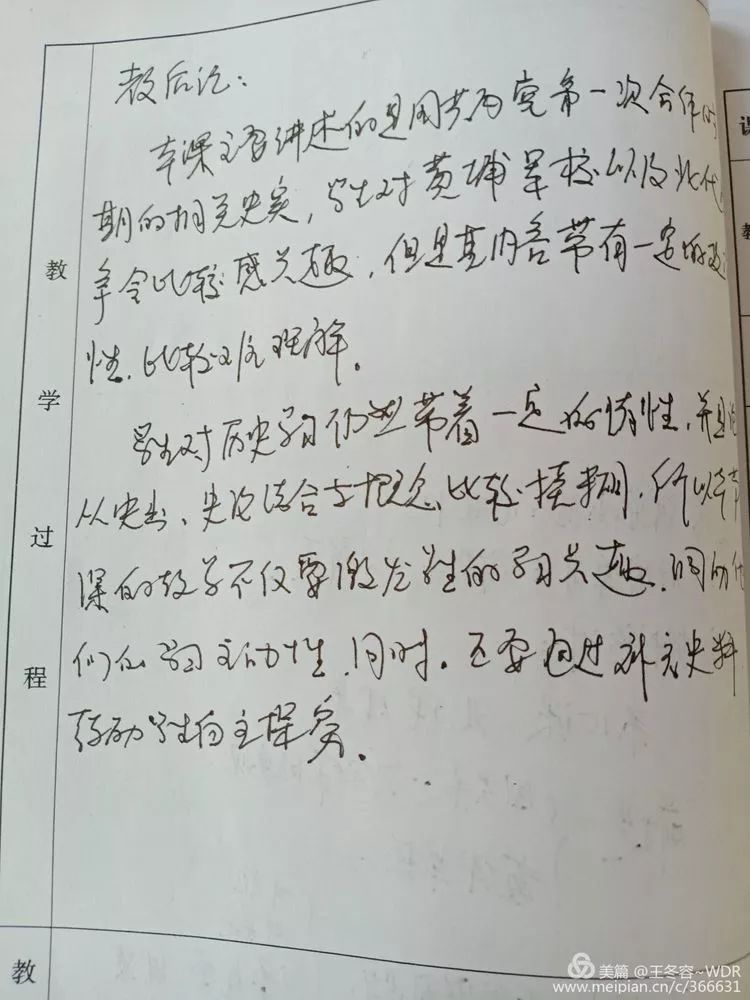 教后记:
本课主要讲述的是国共两党第一次合作时
期的相关史实,学生对黄埔军校以及北伐
争会比较感兴趣,但是其内容带有一定的政
性,比较难理解。
学生对历史学习仍然带着一定的惰性,并且
从史出、史论结合的概念比较模糊,所以本节
课的教学不仅要激发学生的学习兴趣,调动他
们的学习主动性,同时,还要通过补充史料
鼓励学生自主探究。
教
学
过
程
教
课
教
美篇 @王冬容~WDR
www.meipian.cn/c/366631